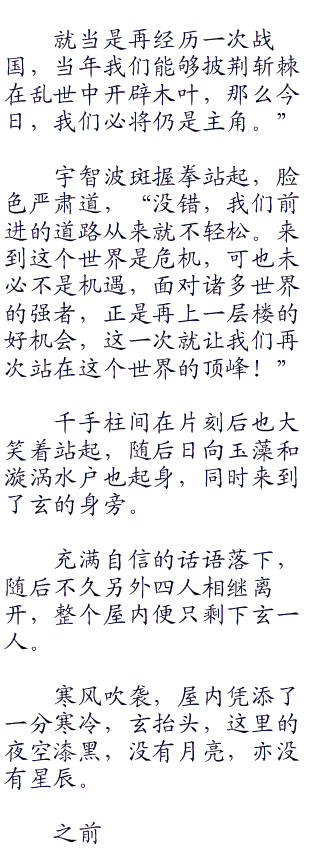 就当是再经历一次战
国，当年我们能够披荆斩棘
在乱世中开辟木叶，那么今
日，我们必将仍是主角。”
宇智波斑握拳站起，脸
色严肃道，“没错，我们前
进的道路从来就不轻松。来
到这个世界是危机，可也未
必不是机遇，面对诸多世界
的强者，正是再上一层楼的
好机会，这一次就让我们再
次站在这个世界的顶峰！”
千手柱间在片刻后也大
笑着站起，随后日向玉藻和
漩涡水户也起身，同时来到
了玄的身旁。
充满自信的话语落下，
随后不久另外四人相继离
开，整个屋内便只剩下玄一
人。
寒风吹袭，屋内凭添了
一分寒冷，玄抬头，这里的
夜空漆黑，没有月亮，亦没
有星辰。
之前